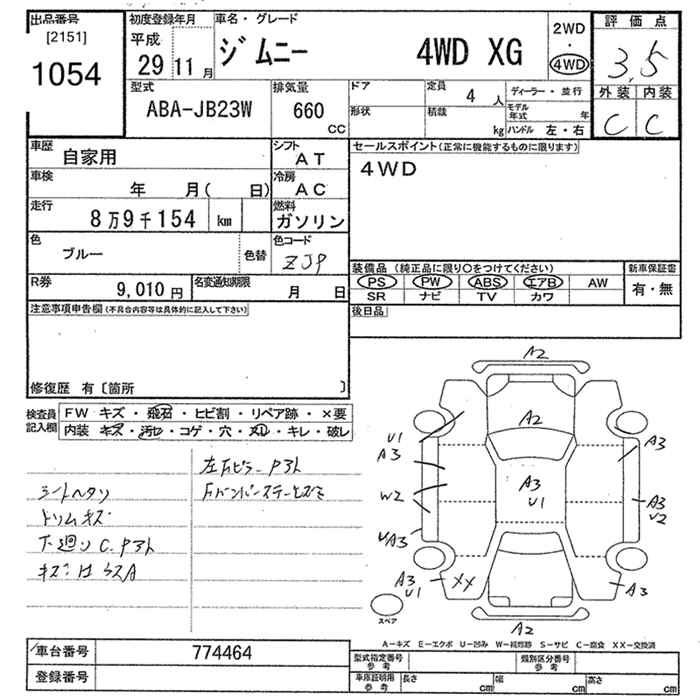 出品番号
[2151]
1054
初度登録年月
平成
29 11 月
車名・グレード
ジムニー 4WD XG
2WD
・
4WD
評価点
3,5
外装 内装
C C
型式
ABA-JB23W
排気量
660
CC
ドア
定員
4 人
ディーラー・並行
形状
積載
kg
モデル年式 年
ハンドル 左・右
車歴
自家用
シフト
AT
セールスポイント(正常に機能するものに限ります)
4WD
車検
年 月( 日)
冷房
AC
走行
8万9千154 km
燃料
ガソリン
色
ブルー
色替
色コード
ZJP
装備品 (純正品に限り○をつけてください)
新車保証書
PS PW ABS エアB AW
有・無
SR ナビ TV カワ
R券
9,010 円
名変通知期限
月 日
後日品
注意事項申告欄(不具合内容等は具体的に記入して下さい)
修復歴 有〔箇所 〕
検査員記入欄
FW キズ・飛石・ヒビ割・リペア跡・×要
内装 キズ・汚レ・コゲ・穴・スレ・キレ・破レ
シートヘタリ
トリムキズ
下廻リ C. Pアト
左 Fピラー Pアト
A2
A2
U1
A3
A3
A3
U1
W2
A3
U2
UA3
A3
U1
XX
A3
A2
スペア
A-キズ E-エクボ U-凹み W-補修跡 S-サビ C-腐食 XX-交換済
車台番号
774464
登録番号
型式指定番号
参考
類別区分番号
参考
車庫証明用
参考
長さ cm
幅 cm
高さ cm